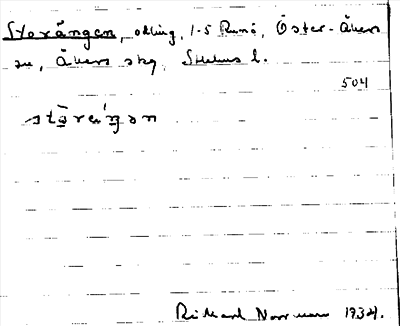 Storängen, odling, 1-5 Runö, Öster-Åkers
sn, Åkers skg, Sthlms l.
504
Rickard 1934.